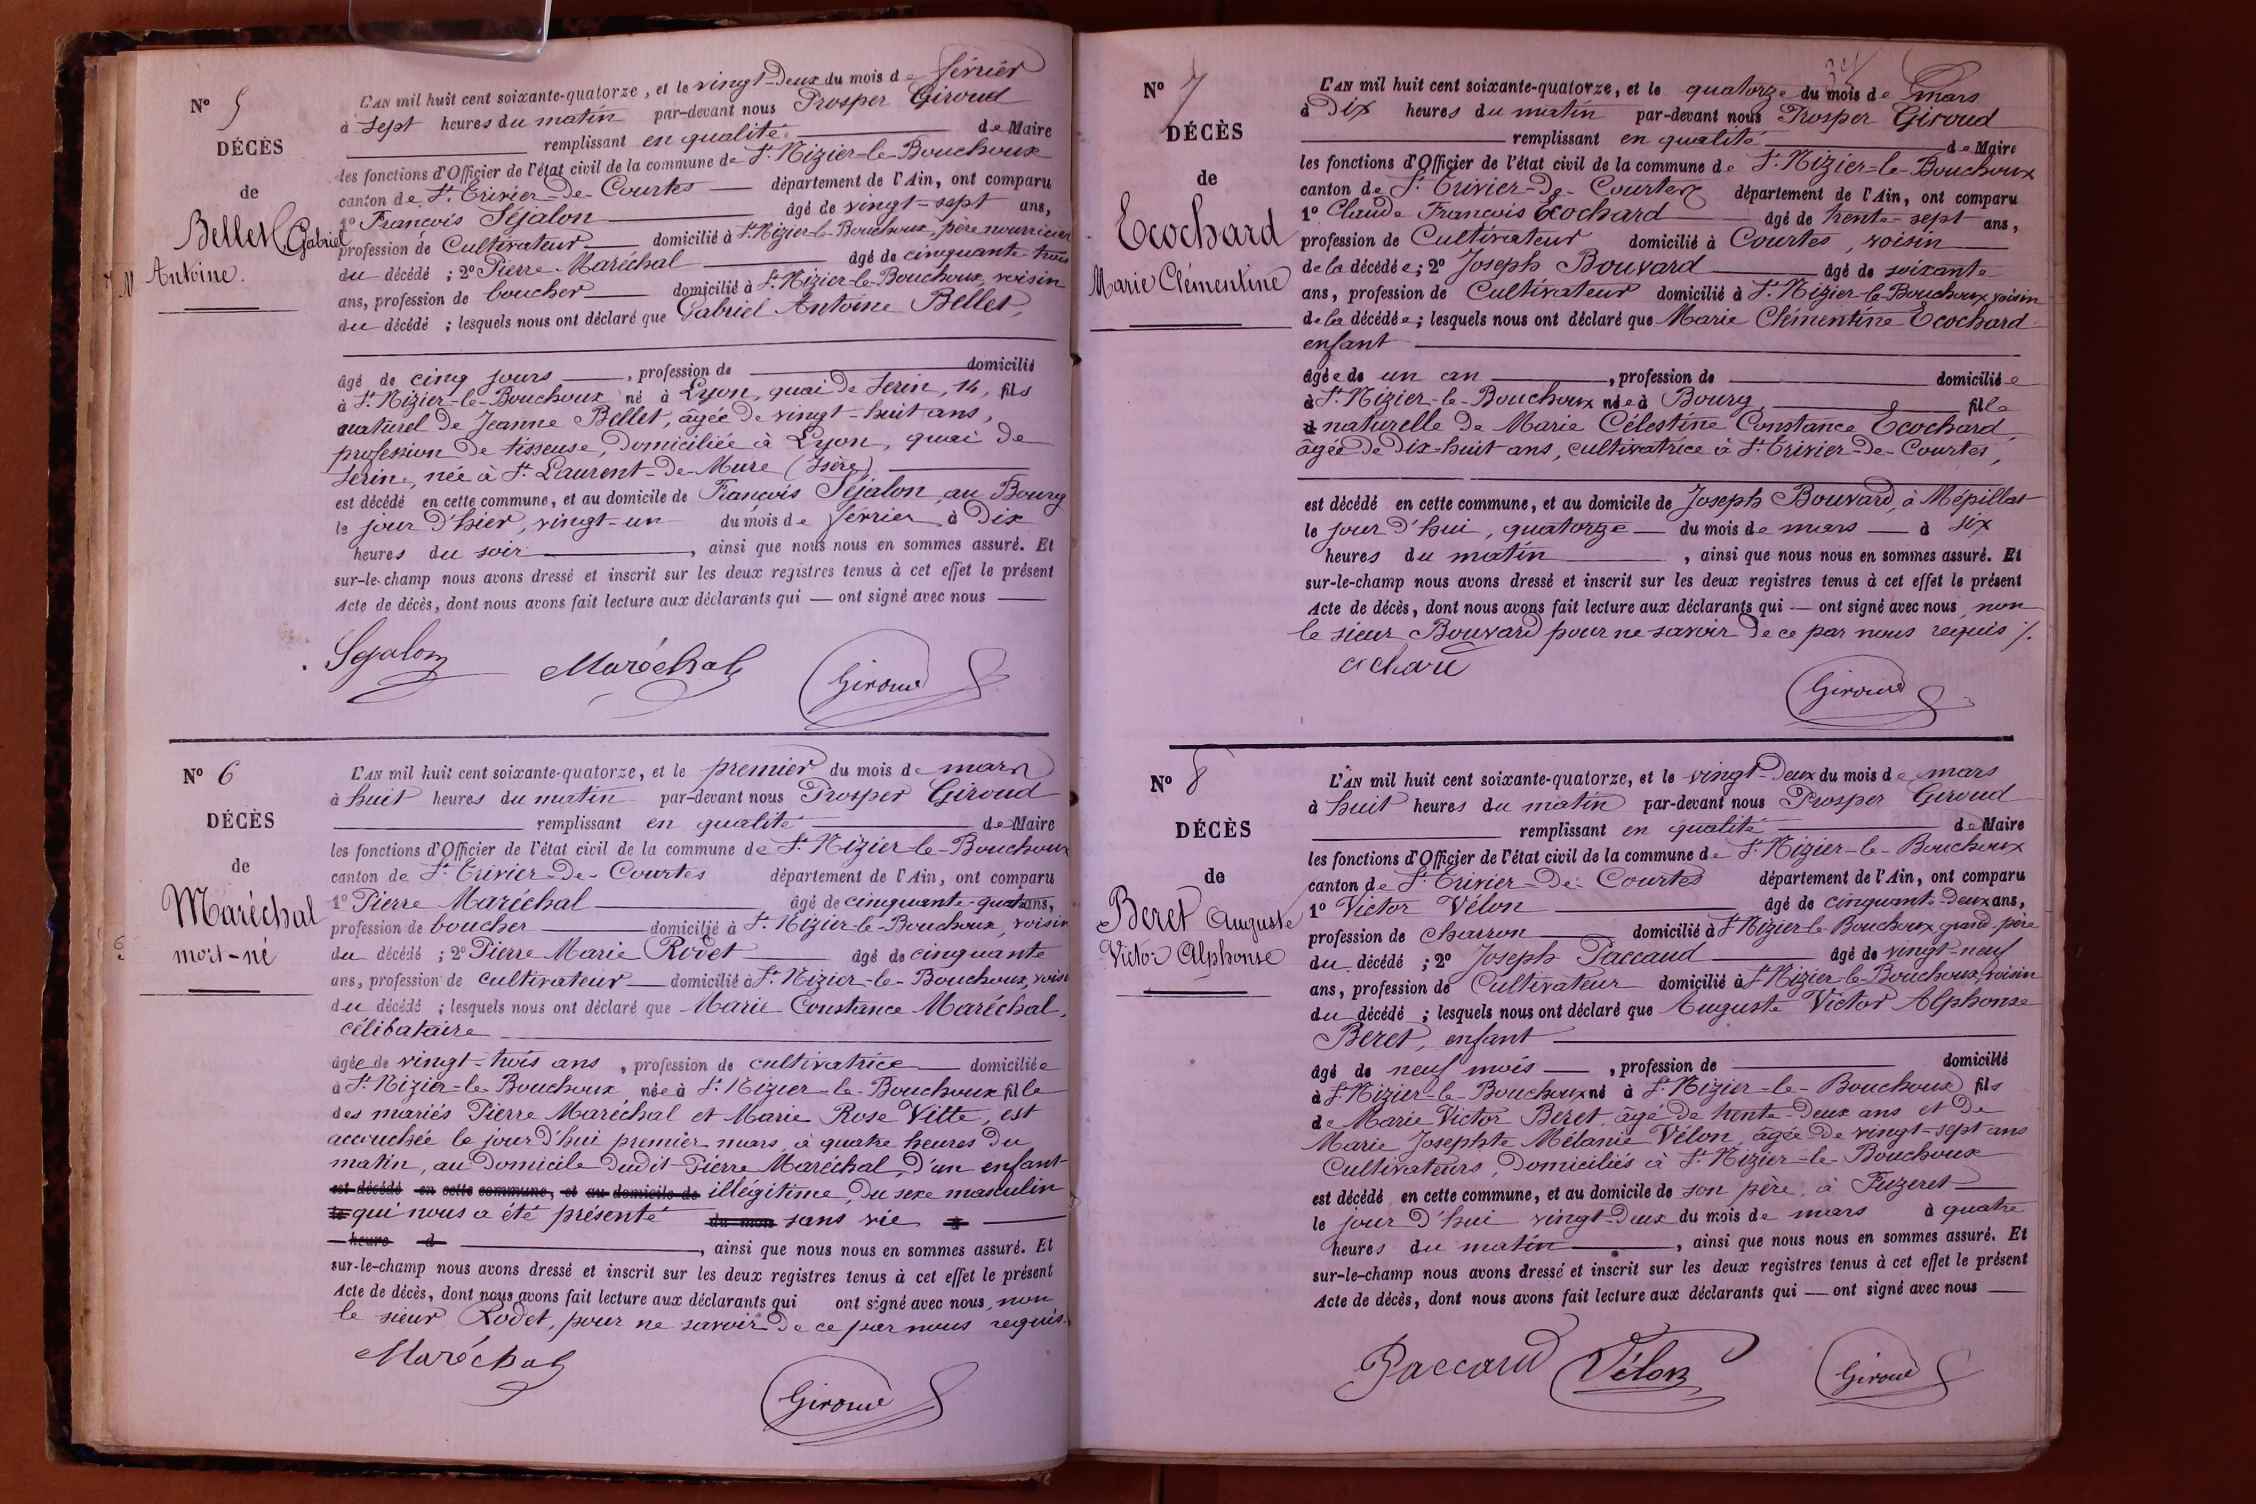 N° 5
DÉCÈS
de
Bellet, Gabriel
Antoine.
L'AN mil huit cent soixante-quatorze, et le vingt-deux du mois de février
à sept heures du matin par-devant nous Prosper Giroud
remplissant en qualité de Maire
les fonctions d'Officier de l'état civil de la commune de St Nizier-le-Bouchoux
canton de St Trivier-de-Courtes département de l'Ain, ont comparu
1° François Séjalon âgé de vingt-sept ans,
profession de Cultivateur domicilié à St Nizier-le-Bouchoux, père nourricier
du décédé ; 2° Pierre Maréchal âgé de cinquante trois
ans, profession de boucher domicilié à St Nizier-le-Bouchoux, voisin
du décédé ; lesquels nous ont déclaré que Gabriel Antoine Bellet,
âgé de cinq jours, profession de domicilié
à St Nizier-le-Bouchoux né à Lyon, quai de Serin, 14, fils
naturel de Jeanne Bellet, âgée de vingt-huit ans,
profession de tisseuse, domiciliée à Lyon, quai de
Serin, née à St Laurent-de-Mure (Isère)
est décédé en cette commune, et au domicile de François Séjalon, au Bourg
le jour d'hier, vingt-un du mois de février à dix
heures du soir, ainsi que nous nous en sommes assuré. Et
sur-le-champ nous avons dressé et inscrit sur les deux registres tenus à cet effet le présent
Acte de décès, dont nous avons fait lecture aux déclarants qui — ont signé avec nous —
Sejalon Maréchal Giroud
N° 6
DÉCÈS
de
Maréchal
mort-né
L'AN mil huit cent soixante-quatorze, et le premier du mois de mars
à huit heures du matin par-devant nous Prosper Giroud
remplissant en qualité de Maire
les fonctions d'Officier de l'état civil de la commune de St Nizier-le-Bouchoux
canton de St Trivier-de-Courtes département de l'Ain, ont comparu
1° Pierre Maréchal âgé de cinquante-quatre ans,
profession de boucher domicilié à St Nizier-le-Bouchoux, voisin
du décédé ; 2° Pierre Marie Rodet âgé de cinquante
ans, profession de cultivateur domicilié à St Nizier-le-Bouchoux, voisin
du décédé ; lesquels nous ont déclaré que Marie Constance Maréchal,
célibataire
âgée de vingt-trois ans, profession de cultivatrice domiciliée
à St Nizier-le-Bouchoux née à St Nizier-le-Bouchoux fille
des mariés Pierre Maréchal et Marie Rose Vitte, est
accouchée le jour d'hui premier mars, à quatre heures du
matin, au domicile dudit Pierre Maréchal, d'un enfant
est décédé en cette commune, et au domicile de illégitime, du sexe masculin
le qui nous a été présenté du mois sans vie à
heure d, ainsi que nous nous en sommes assuré. Et
sur-le-champ nous avons dressé et inscrit sur les deux registres tenus à cet effet le présent
Acte de décès, dont nous avons fait lecture aux déclarants qui ont signé avec nous, non
le sieur Rodet, pour ne savoir de ce par nous requis.
Maréchal Giroud
N° 7
DÉCÈS
de
Ecochard
Marie Clémentine
L'AN mil huit cent soixante-quatorze, et le quatorze du mois de mars
à dix heures du matin par-devant nous Prosper Giroud
remplissant en qualité de Maire
les fonctions d'Officier de l'état civil de la commune de St Nizier-le-Bouchoux
canton de St Trivier-de-Courtes département de l'Ain, ont comparu
1° Claude François Ecochard âgé de trente-sept ans,
profession de Cultivateur domicilié à Courtes, voisin
de la décédée ; 2° Joseph Bouvard âgé de soixante
ans, profession de Cultivateur domicilié à St Nizier-le-Bouchoux, voisin
de la décédée ; lesquels nous ont déclaré que Marie Clémentine Ecochard
enfant
âgée de un an, profession de domiciliée
à St Nizier-le-Bouchoux née à Bourg fille
d naturelle de Marie Célestine Constance Ecochard,
âgée de dix-huit ans, cultivatrice à St Trivier-de-Courtes,
est décédé en cette commune, et au domicile de Joseph Bouvard, à Mépillat
le jour d'hui, quatorze du mois de mars à six
heures du matin, ainsi que nous nous en sommes assuré. Et
sur-le-champ nous avons dressé et inscrit sur les deux registres tenus à cet effet le présent
Acte de décès, dont nous avons fait lecture aux déclarants qui — ont signé avec nous, non
le sieur Bouvard pour ne savoir de ce par nous requis ./.
Giroud
N° 8
DÉCÈS
de
Beret Auguste
Victor Alphonse
L'AN mil huit cent soixante-quatorze, et le vingt-deux du mois de mars
à huit heures du matin par-devant nous Prosper Giroud
remplissant en qualité de Maire
les fonctions d'Officier de l'état civil de la commune de St Nizier-le-Bouchoux
canton de St Trivier-de-Courtes département de l'Ain, ont comparu
1° Victor Vélon âgé de cinquante-deux ans,
profession de charron domicilié à St Nizier-le-Bouchoux, grand-père
du décédé ; 2° Joseph Paccaud âgé de vingt-neuf
ans, profession de Cultivateur domicilié à St Nizier-le-Bouchoux, voisin
du décédé ; lesquels nous ont déclaré que Auguste Victor Alphonse
Beret, enfant
âgé de neuf mois, profession de domicilié
à St Nizier-le-Bouchoux né à St Nizier-le-Bouchoux fils
de Marie Victor Beret, âgé de trente-deux ans et de
Marie Josephte Mélanie Vélon, âgée de vingt-sept ans
Cultivateurs, domiciliés à St Nizier-le-Bouchoux
est décédé en cette commune, et au domicile de son père, à Fuzeret
le jour d'hui vingt-deux du mois de mars à quatre
heures du matin, ainsi que nous nous en sommes assuré. Et
sur-le-champ nous avons dressé et inscrit sur les deux registres tenus à cet effet le présent
Acte de décès, dont nous avons fait lecture aux déclarants qui — ont signé avec nous —
Paccaud Vélon Giroud